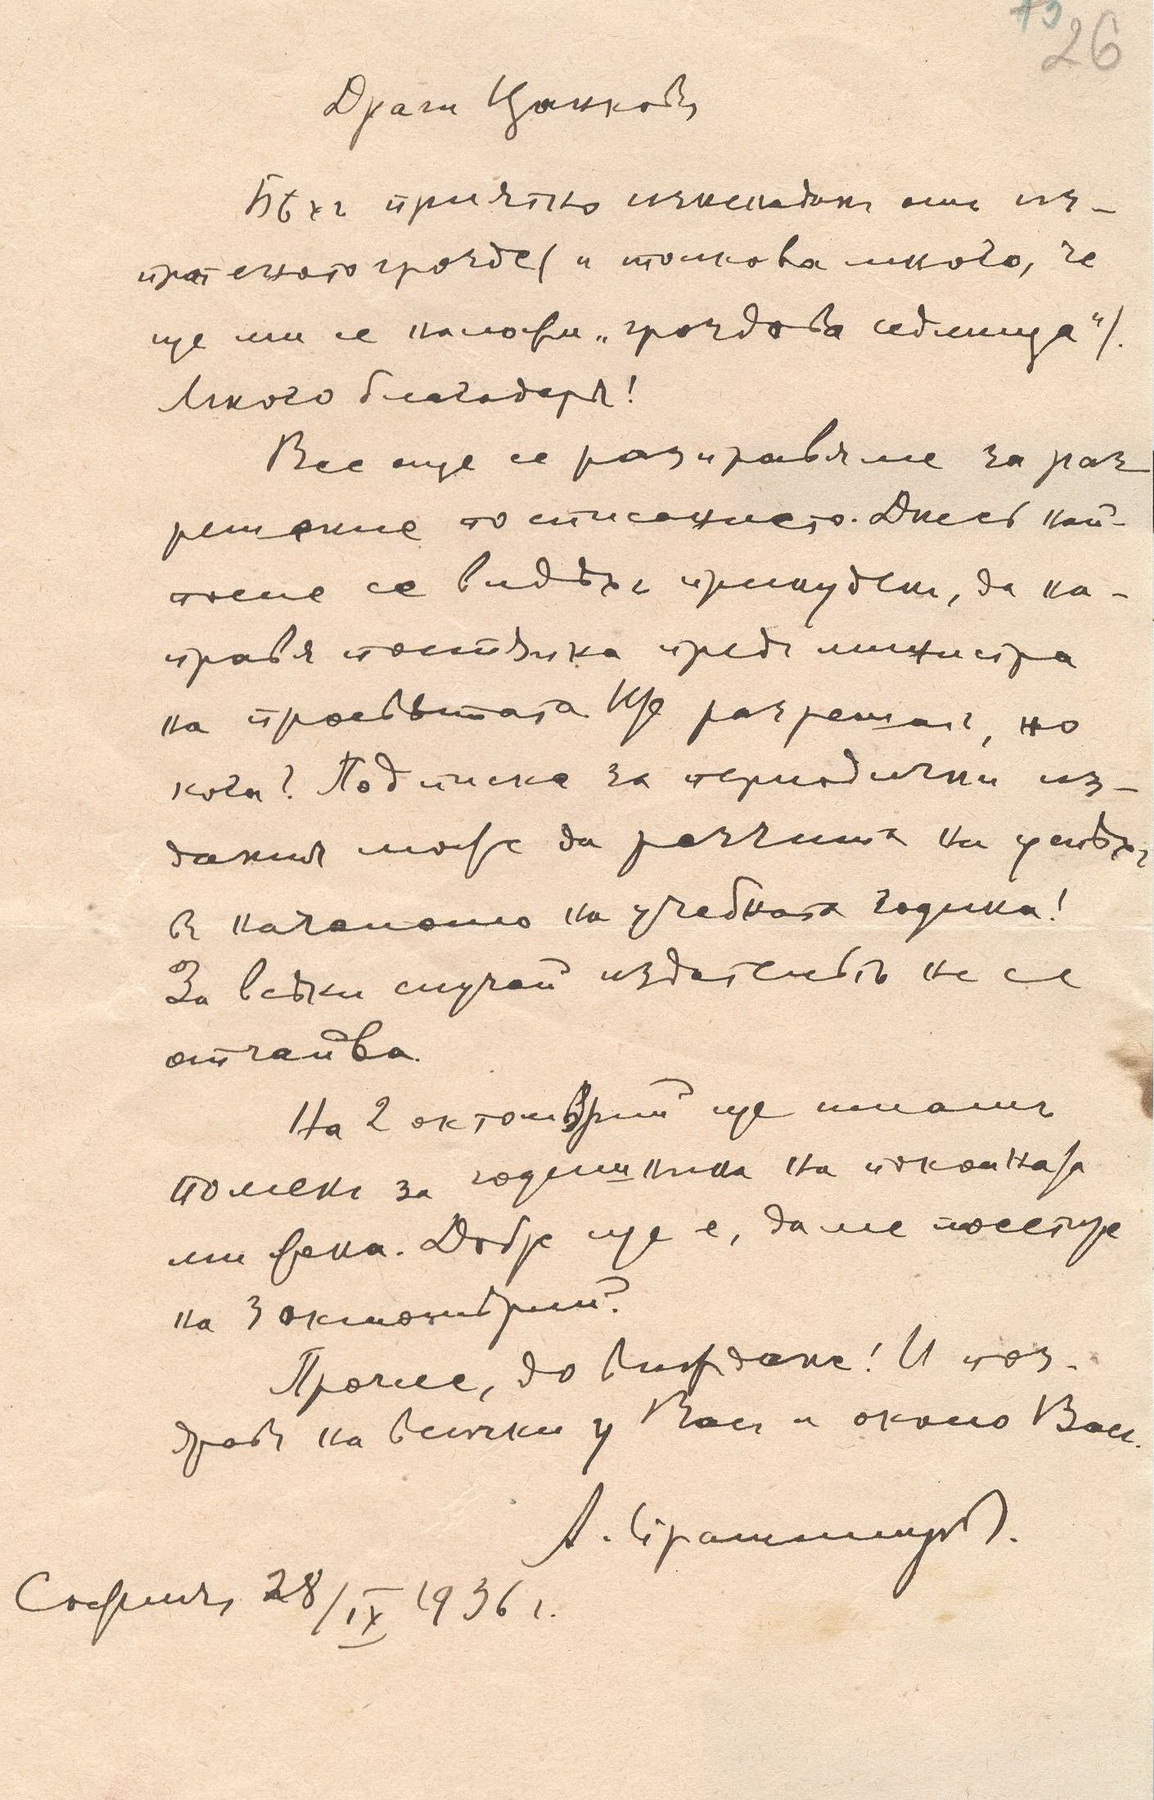 73
26
Драги Цанковъ
Бѣхъ приятно изненаданъ отъ из-
пратеното грозде (и толкова много, че
ще ми се наложи „гроздова седмица“).
Много благодаря!
Все още се разправяме за раз
решение то списанието. Днесъ най-
после се видѣхъ принуденъ, да на-
правя постъпка предъ министра
на просвѣтата. Ще разрешатъ, но
кога? Подписка за периодични из-
дания може да разчита на успѣхъ
въ началото на учебната година!
За всѣки случай издательтъ не се
отчайва.
На 2 октомврий ще имамъ
поменъ за годишнина на покойната
ми жена. Добре ще е, да ме посетите
на 3 октомврий.
Прочее, до виждане! И поз-
дравъ на всички у Васъ и около Васъ.
А. Страшимировъ.
София, 28/IX 1936 г.